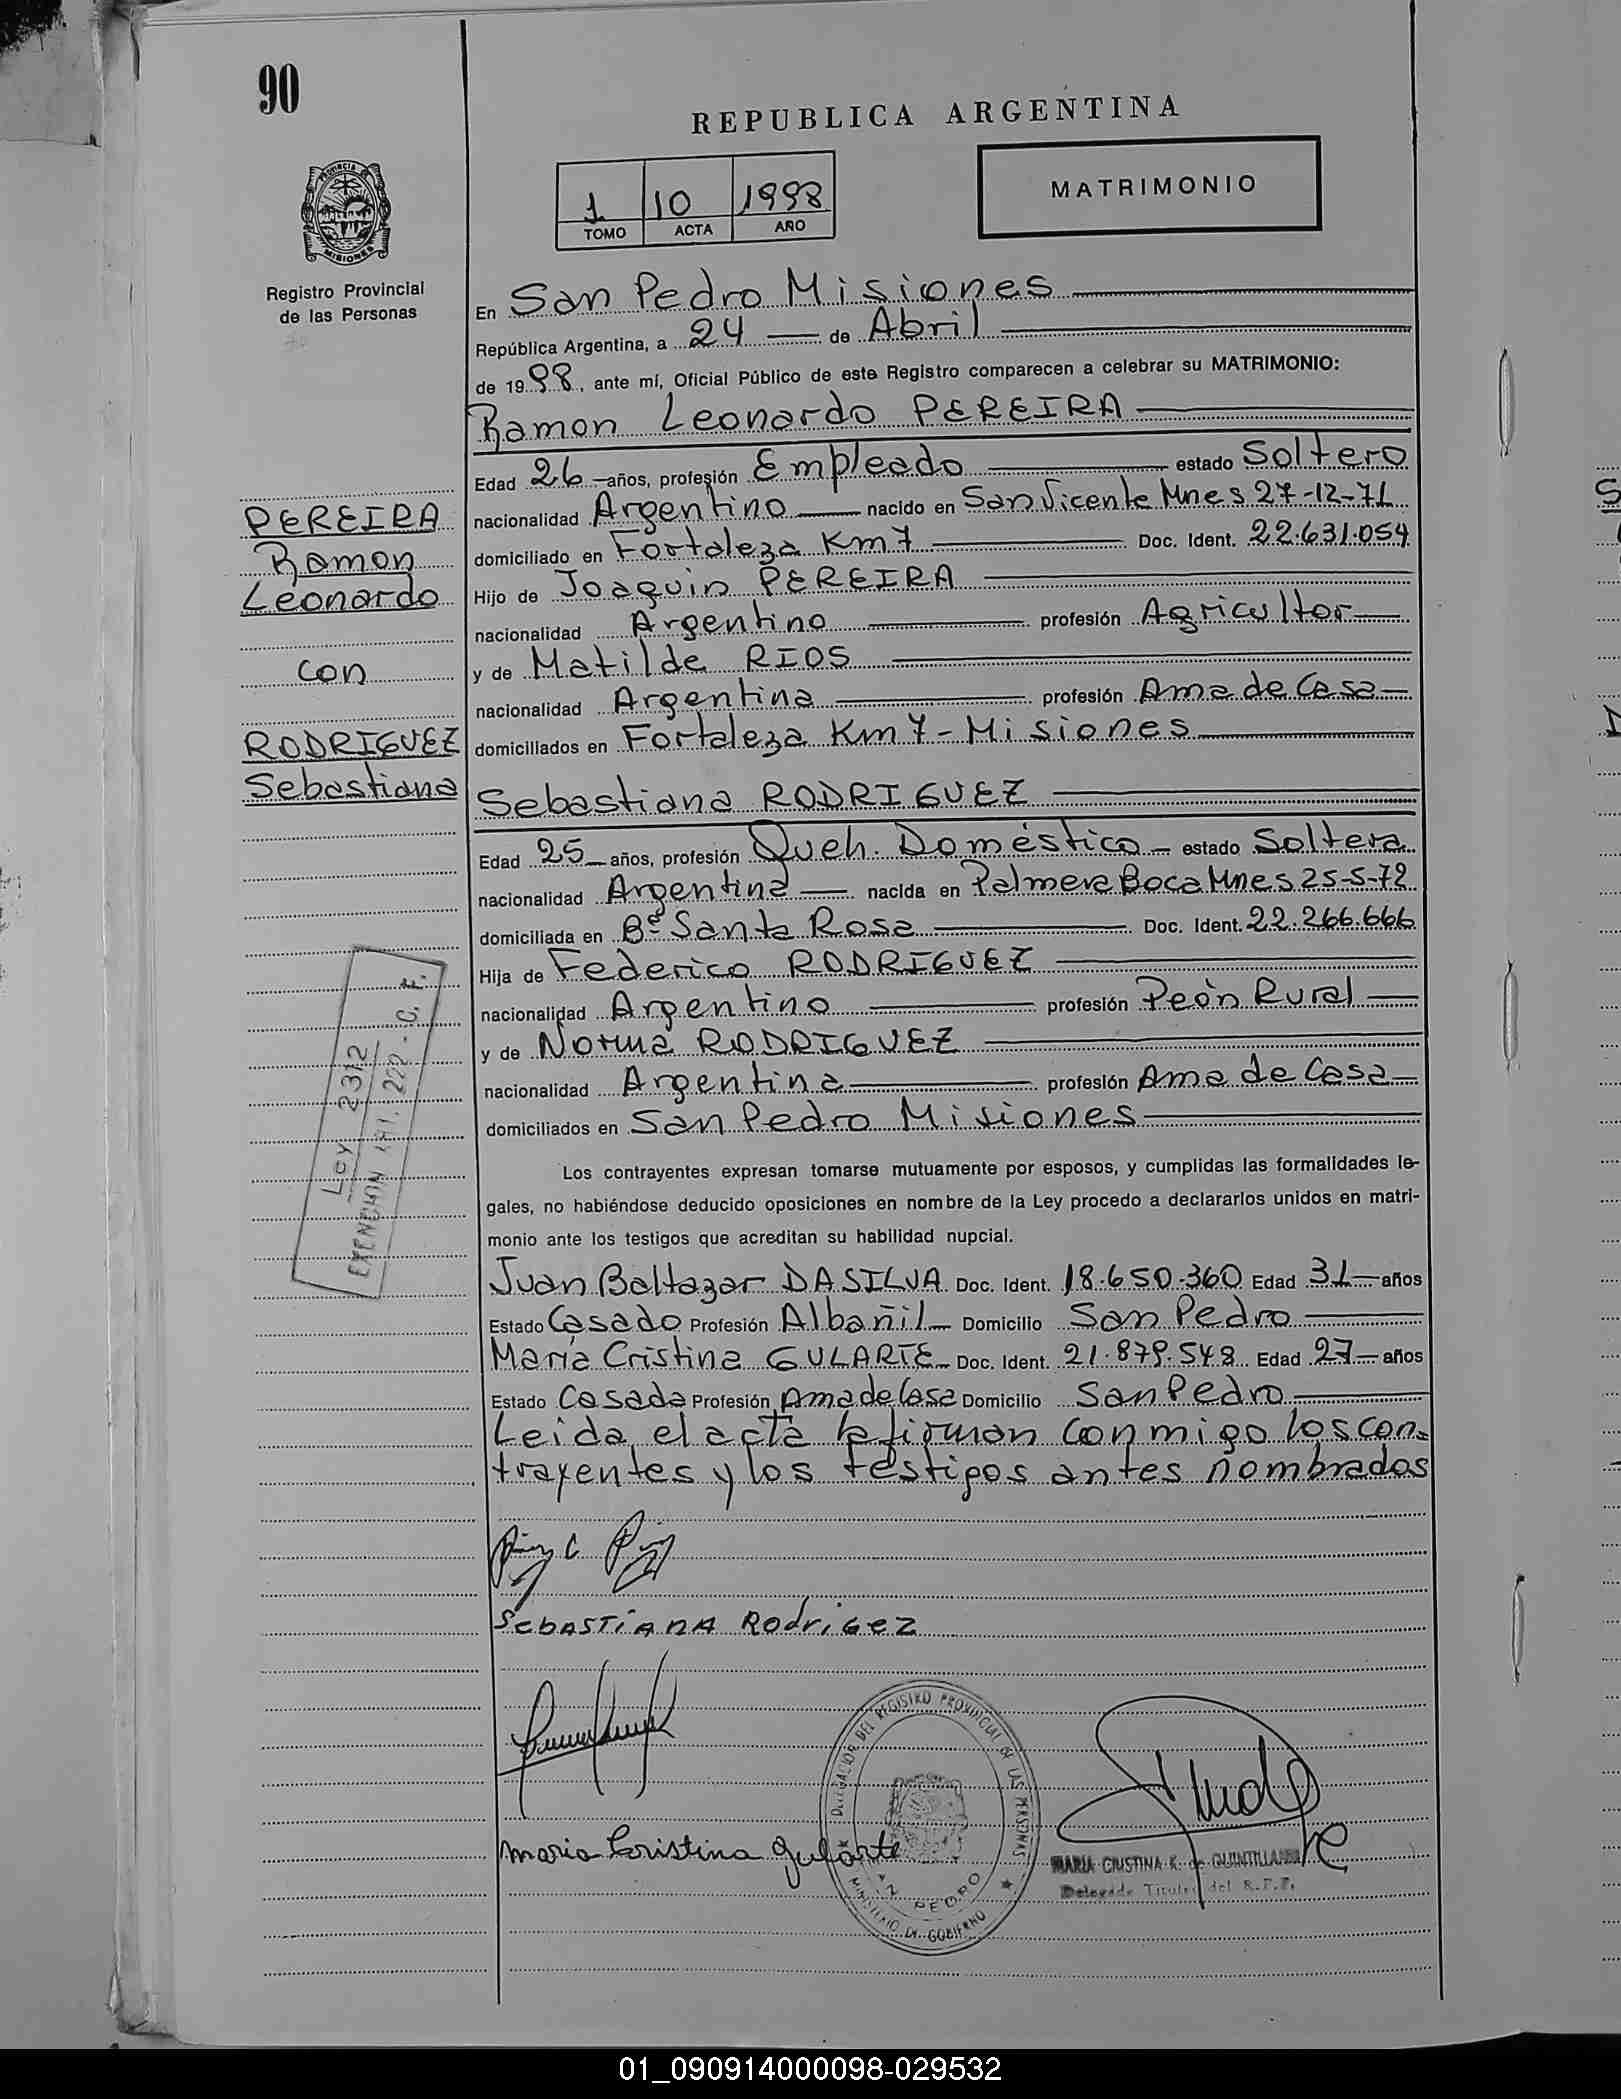 90
REPUBLICA ARGENTINA
PROVINCIA DE
MISIONES
Registro Provincial
de las Personas
1 10 1998
TOMO ACTA AÑO
MATRIMONIO
En San Pedro Misiones
República Argentina, a 24 de Abril
de 1998, ante mí, Oficial Público de este Registro comparecen a celebrar su MATRIMONIO:
Ramon Leonardo PEREIRA
Edad 26 años, profesión Empleado estado Soltero
nacionalidad Argentino nacido en San Vicente Mnes 27-12-71
domiciliado en Fortaleza Km 7 Doc. Ident. 22.631.054
Hijo de Joaquin PEREIRA
nacionalidad Argentino profesión Agricultor
y de Matilde RIOS
nacionalidad Argentina profesión Ama de Casa
domiciliados en Fortaleza Km 7 - Misiones
PEREIRA
Ramon
Leonardo
con
RODRIGUEZ
Sebastiana
Sebastiana RODRIGUEZ
Edad 25 años, profesión Queh. Doméstico estado Soltera
nacionalidad Argentina nacida en Palmera Boca Mnes 25-5-72
domiciliada en Bº Santa Rosa Doc. Ident. 22.266.666
Hija de Federico RODRIGUEZ
nacionalidad Argentino profesión Peòn Rural
y de Norma RODRIGUEZ
nacionalidad Argentina profesión Ama de Casa
domiciliados en San Pedro Misiones
LEY 2312
EXENCION ART. 272 - C. F.
Los contrayentes expresan tomarse mutuamente por esposos, y cumplidas las formalidades le-
gales, no habiéndose deducido oposiciones en nombre de la Ley procedo a declararlos unidos en matri-
monio ante los testigos que acreditan su habilidad nupcial.
Juan Baltazar DASILVA Doc. Ident. 18.650.360 Edad 31 años
Estado Casado Profesión Albañil Domicilio San Pedro
María Cristina GULARTE Doc. Ident. 21.879.548 Edad 27 años
Estado Casada Profesión Ama de Casa Domicilio San Pedro
Leida el acta la firman conmigo los con-
trayentes y los testigos antes nombrados
SEBASTIANA RodriGeZ
Maria Cristina Gularte
DELEGACION DEL REGISTRO PROVINCIAL DE LAS PERSONAS
SAN PEDRO
MINISTERIO DE GOBIERNO
MARIA CRISTINA K. de QUINTILLAN
Delegada Titular del R.P.P.
01_090914000098-029532